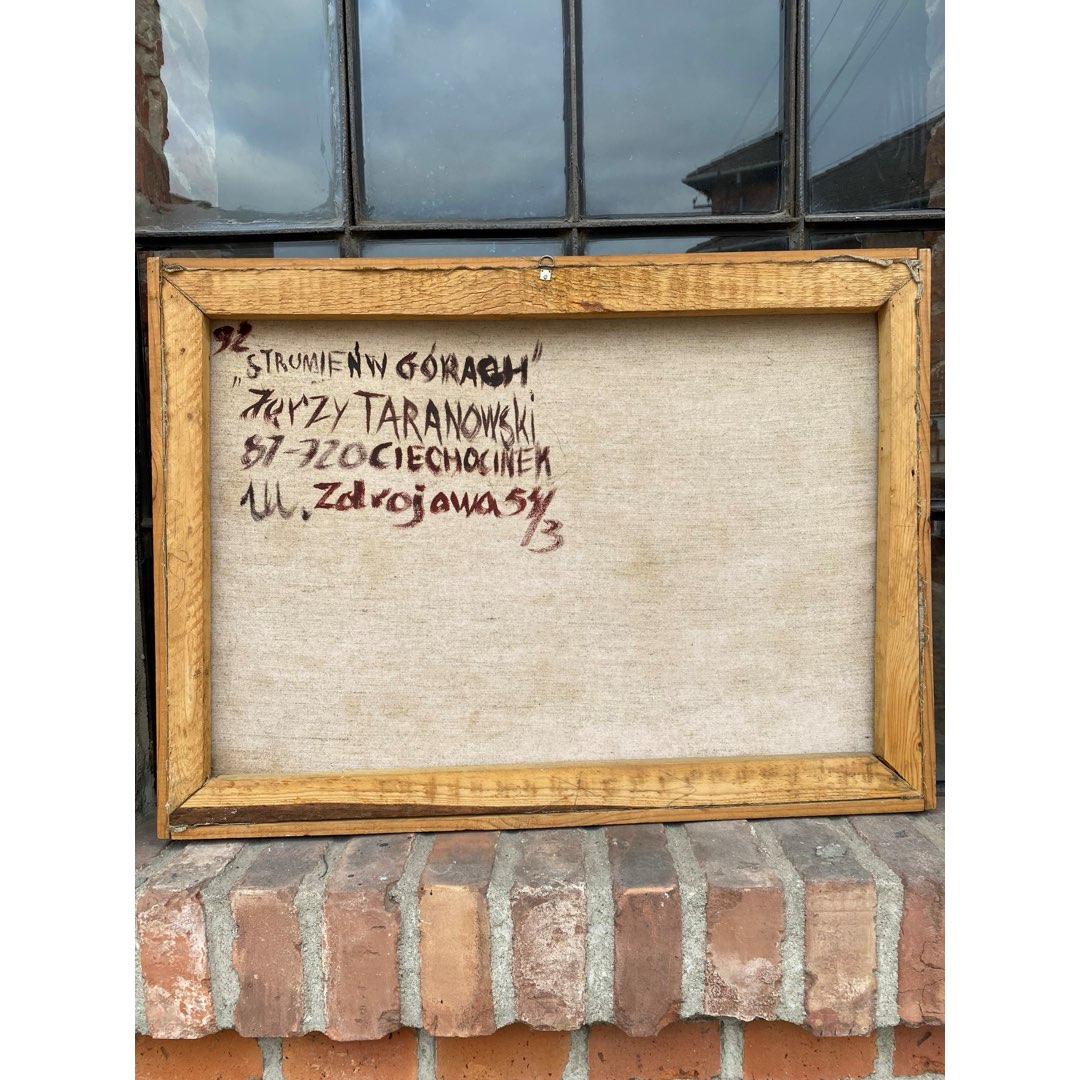 92
„STRUMIEŃ W GÓRACH"
Jerzy TARANOWSKI
87-720 CIECHOCINEK
Ul. Zdrojawa 54/3